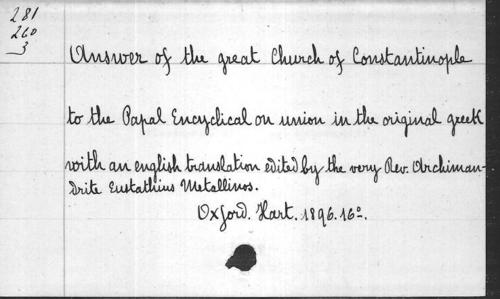 281
260
3
Answer of the great Church of Constantinople
to the Papal Encyclical on union in the original greek
with an english translation edited by the very Rev. Archiman-
drite Eustathius Metallinos.
Oxford. Hart. 1896. 16º.